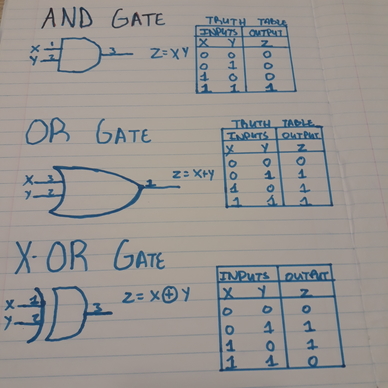 AND GATE
X 1
Y 2
3
Z = XY
TRUTH TABLE
INPUTS OUTPUT
X Y Z
0 0 0
0 1 0
1 0 0
1 1 1
OR GATE
X 3
Y 2
1
Z = X+Y
TRUTH TABLE
INPUTS OUTPUT
X Y Z
0 0 0
0 1 1
1 0 1
1 1 1
X-OR GATE
X 1
Y 2
3
Z = X ⊕ Y
INPUTS OUTPUT
X Y Z
0 0 0
0 1 1
1 0 1
1 1 0